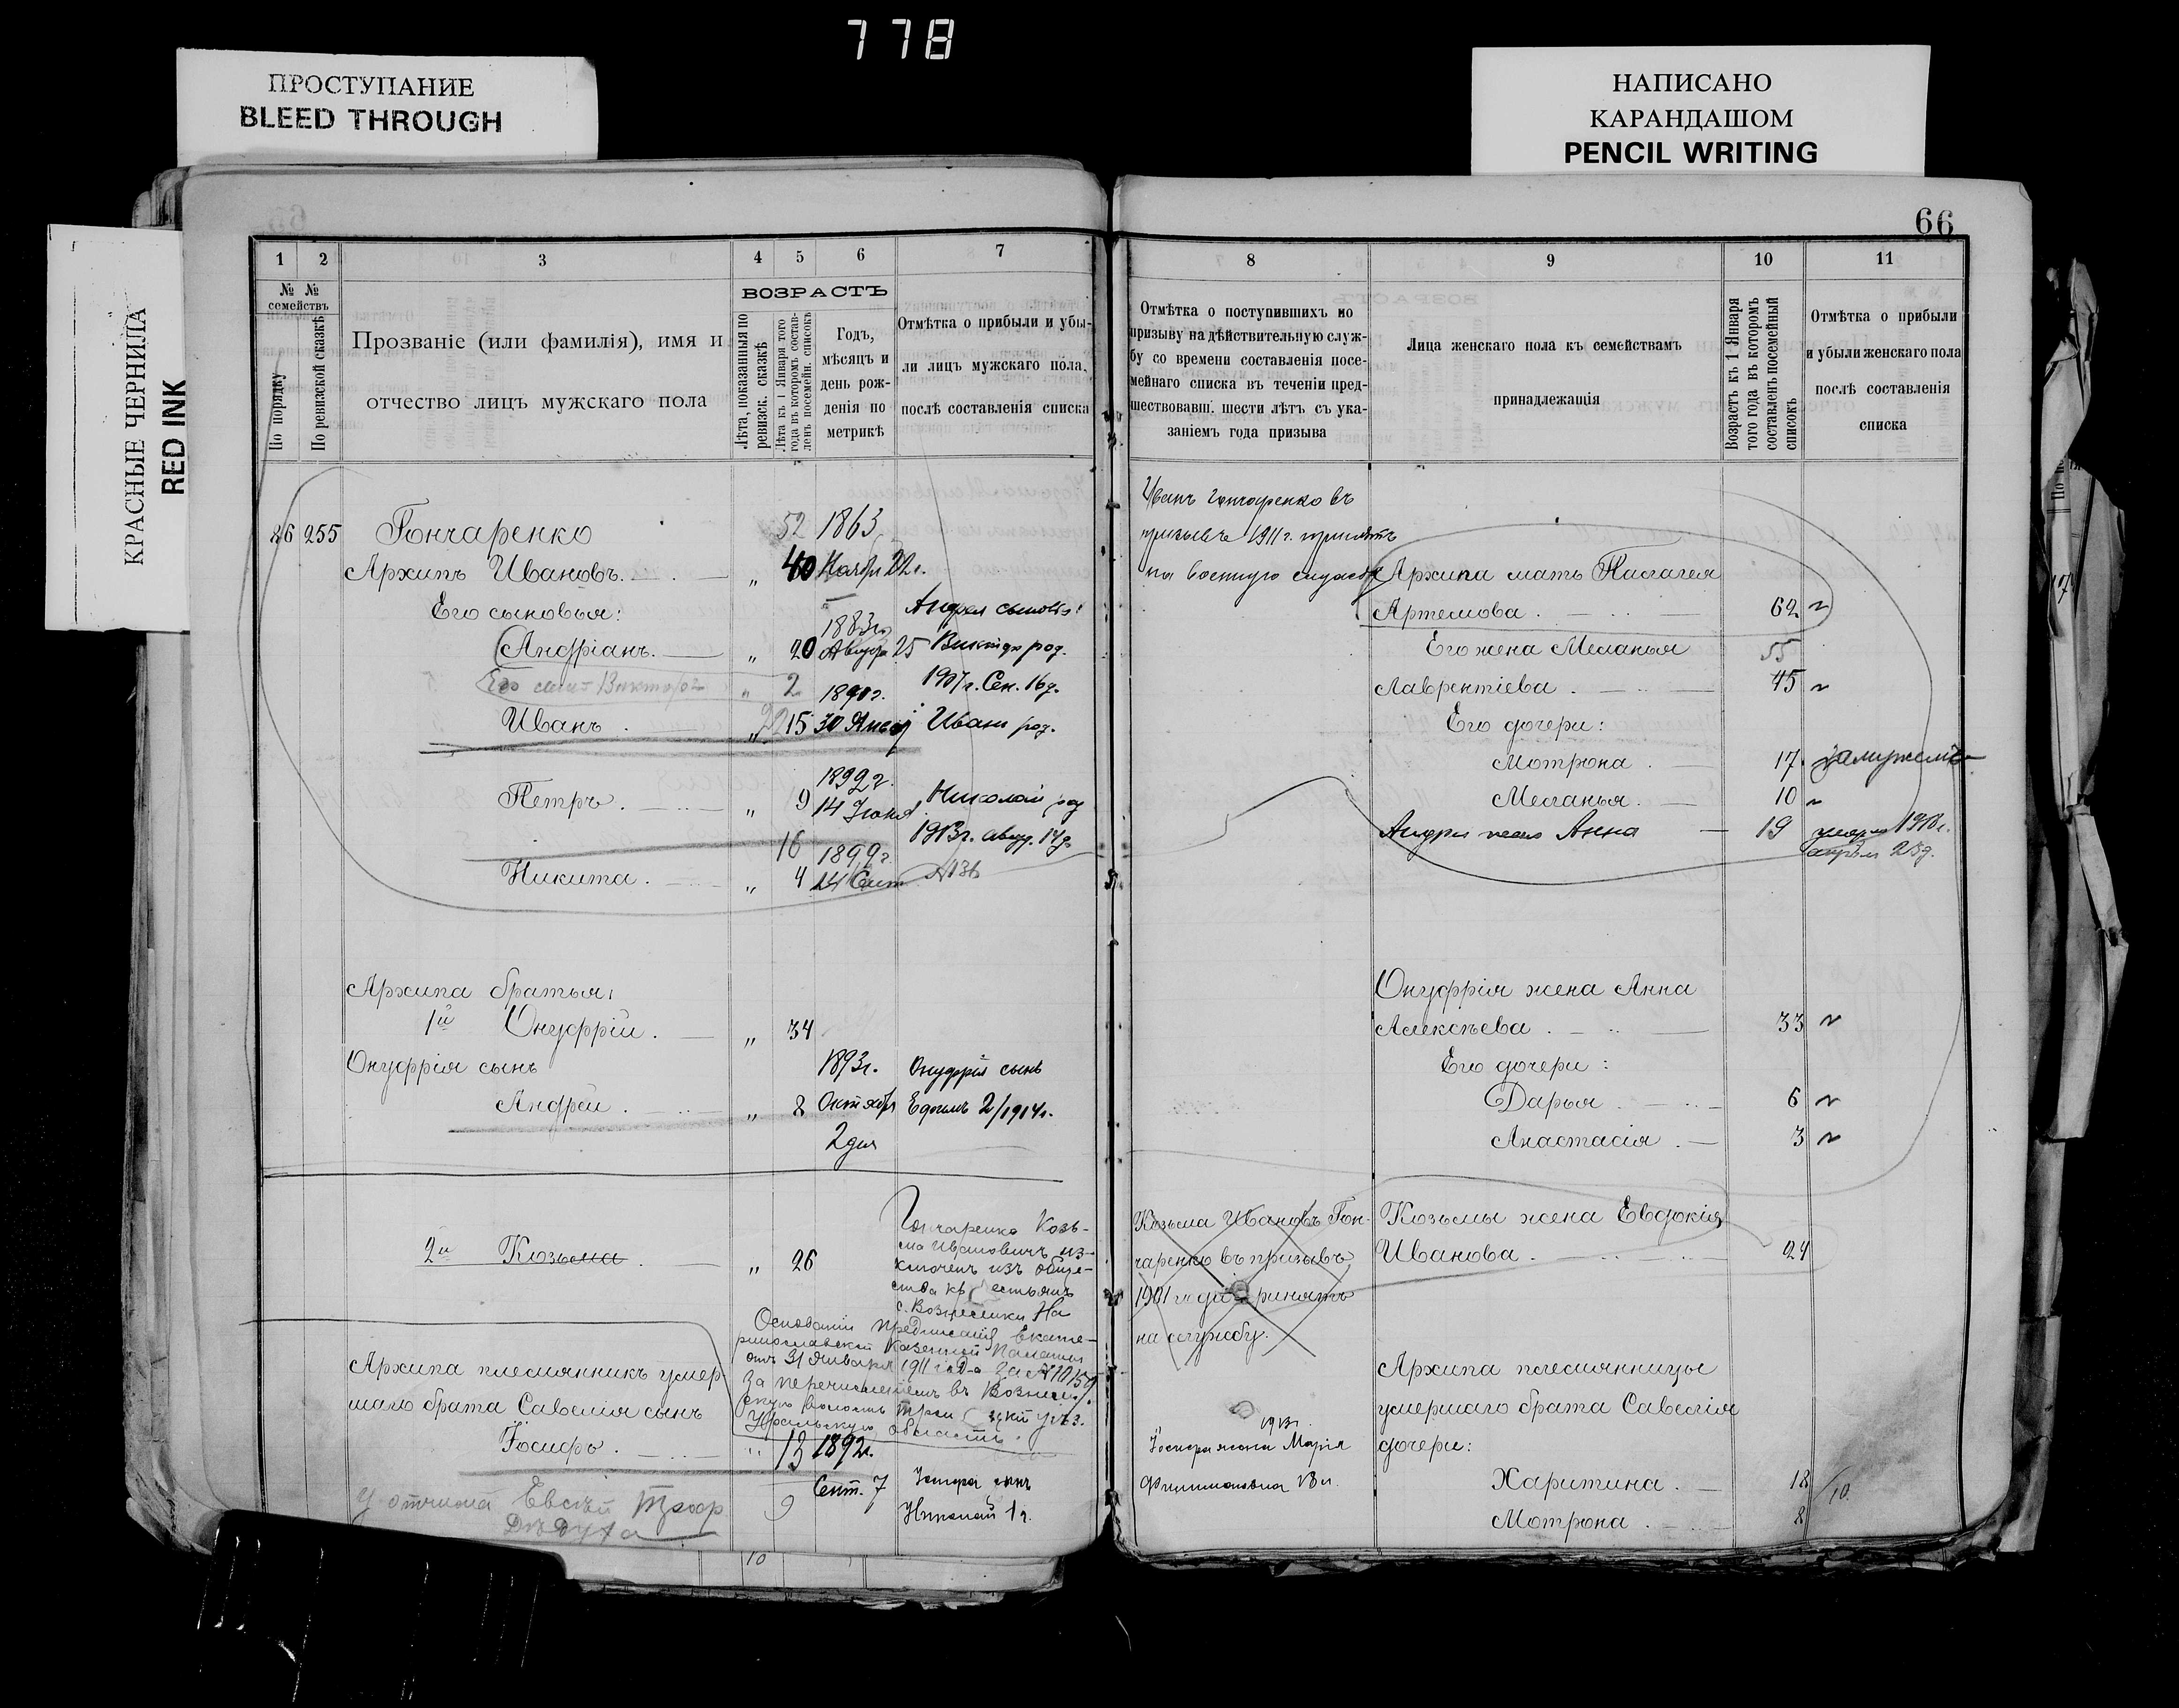 778
ПРОСТУПАНИЕ
BLEED THROUGH
НАПИСАНО
КАРАНДАШОМ
PENCIL WRITING
КРАСНЫЕ ЧЕРНИЛА
RED INK
66
1 2 3 4 5 6 7
№ №
семействъ
По порядку
По ревизской сказкѣ
Прозваніе (или фамилія), имя и
отчество лицъ мужскаго пола
ВОЗРАСТЪ
Лѣта, показанныя по
ревизск. сказкѣ
Лѣта къ 1 Января того
года въ которомъ состав-
ленъ посемейн. списокъ
Годъ,
мѣсяцъ и
день рож-
денія по
метрикѣ
Отмѣтка о прибыли и убы-
ли лицъ мужскаго пола,
послѣ составленія списка
86 255 Гончаренко 52 1863
Архипъ Ивановъ. „ 40 Ноябр 22 г.
Его сыновья: Андрея сыновья:
1883г.
Андріанъ. „ 20 Август 25 Викторъ род.
Его сынъ Викторъ „ 2 1907г. Сен. 16 д.
1890г.
Иванъ . „ 22 15 30 Янв. Иванъ род.
1899г.
Петръ . „ 9 14 Іюня Николай род
1913г. авгу. 14д.
16 1899г.
Никита . „ 4 14 Сент
Архипа братья:
1й Онуфрій . „ 34
Онуфрія сынъ 1893г. Онуфрія сынъ
Андрей . „ 8 Октября Ефимъ 2/1914г.
2 дня
2й Козьма . „ 26
Гончаренко Козь-
ма Ивановичъ из-
ключенъ изъ обще-
ства крестьянъ
с. Вознесенки На
Основаніи предписанія Екате-
ринославской Казенной Палаты
отъ 31 Января 1911 года за № 10150
за перечисленіемъ въ
волость Троицкій уѣз.
Уральскую область.
Архипа племянникъ умер-
шаго брата Савелія сынъ
Іосифъ . „ 13 1892г.
Сент. 7 Іосифа сынъ
Николай 1 г.
У отчима Евсѣй
9
10
8 9 10 11
Отмѣтка о поступившихъ по
призыву на дѣйствительную служ-
бу со времени составленія посе-
мейнаго списка въ теченіи пред-
шествовавш. шести лѣтъ съ ука-
заніемъ года призыва
Лица женскаго пола къ семействамъ
принадлежащія
Возрастъ къ 1 Января
того года въ которомъ
составленъ посемейный
списокъ
Отмѣтка о прибыли
и убыли женскаго пола
послѣ составленія
списка
Иванъ Гончаренко въ
призывъ 1911 г. принятъ
на военную службу
Архипа мать Палагея
Артемова . 62
Его жена Меланья 55
Лаврентіева . 45
Его дочери:
Мотрона . 17 замужемъ
Меланья . 10
Андрея жена Анна 19 умерла 1910г.
апрѣля 23д.
Онуфрія жена Анна
Алексѣева . 33
Его дочери :
Дарья . 6
Анастасія . 3
Козьма Ивановъ Гон-
чаренко въ призывъ
1901 года принятъ
на службу.
Козьмы жена Евдокія
Иванова . 24
Архипа племянницы
умершаго брата Савелія
дочери:
Харитина . 18
Мотрона . 8
10.
1913г.
Іосифа жена Марія
Филимоновна 18 л.